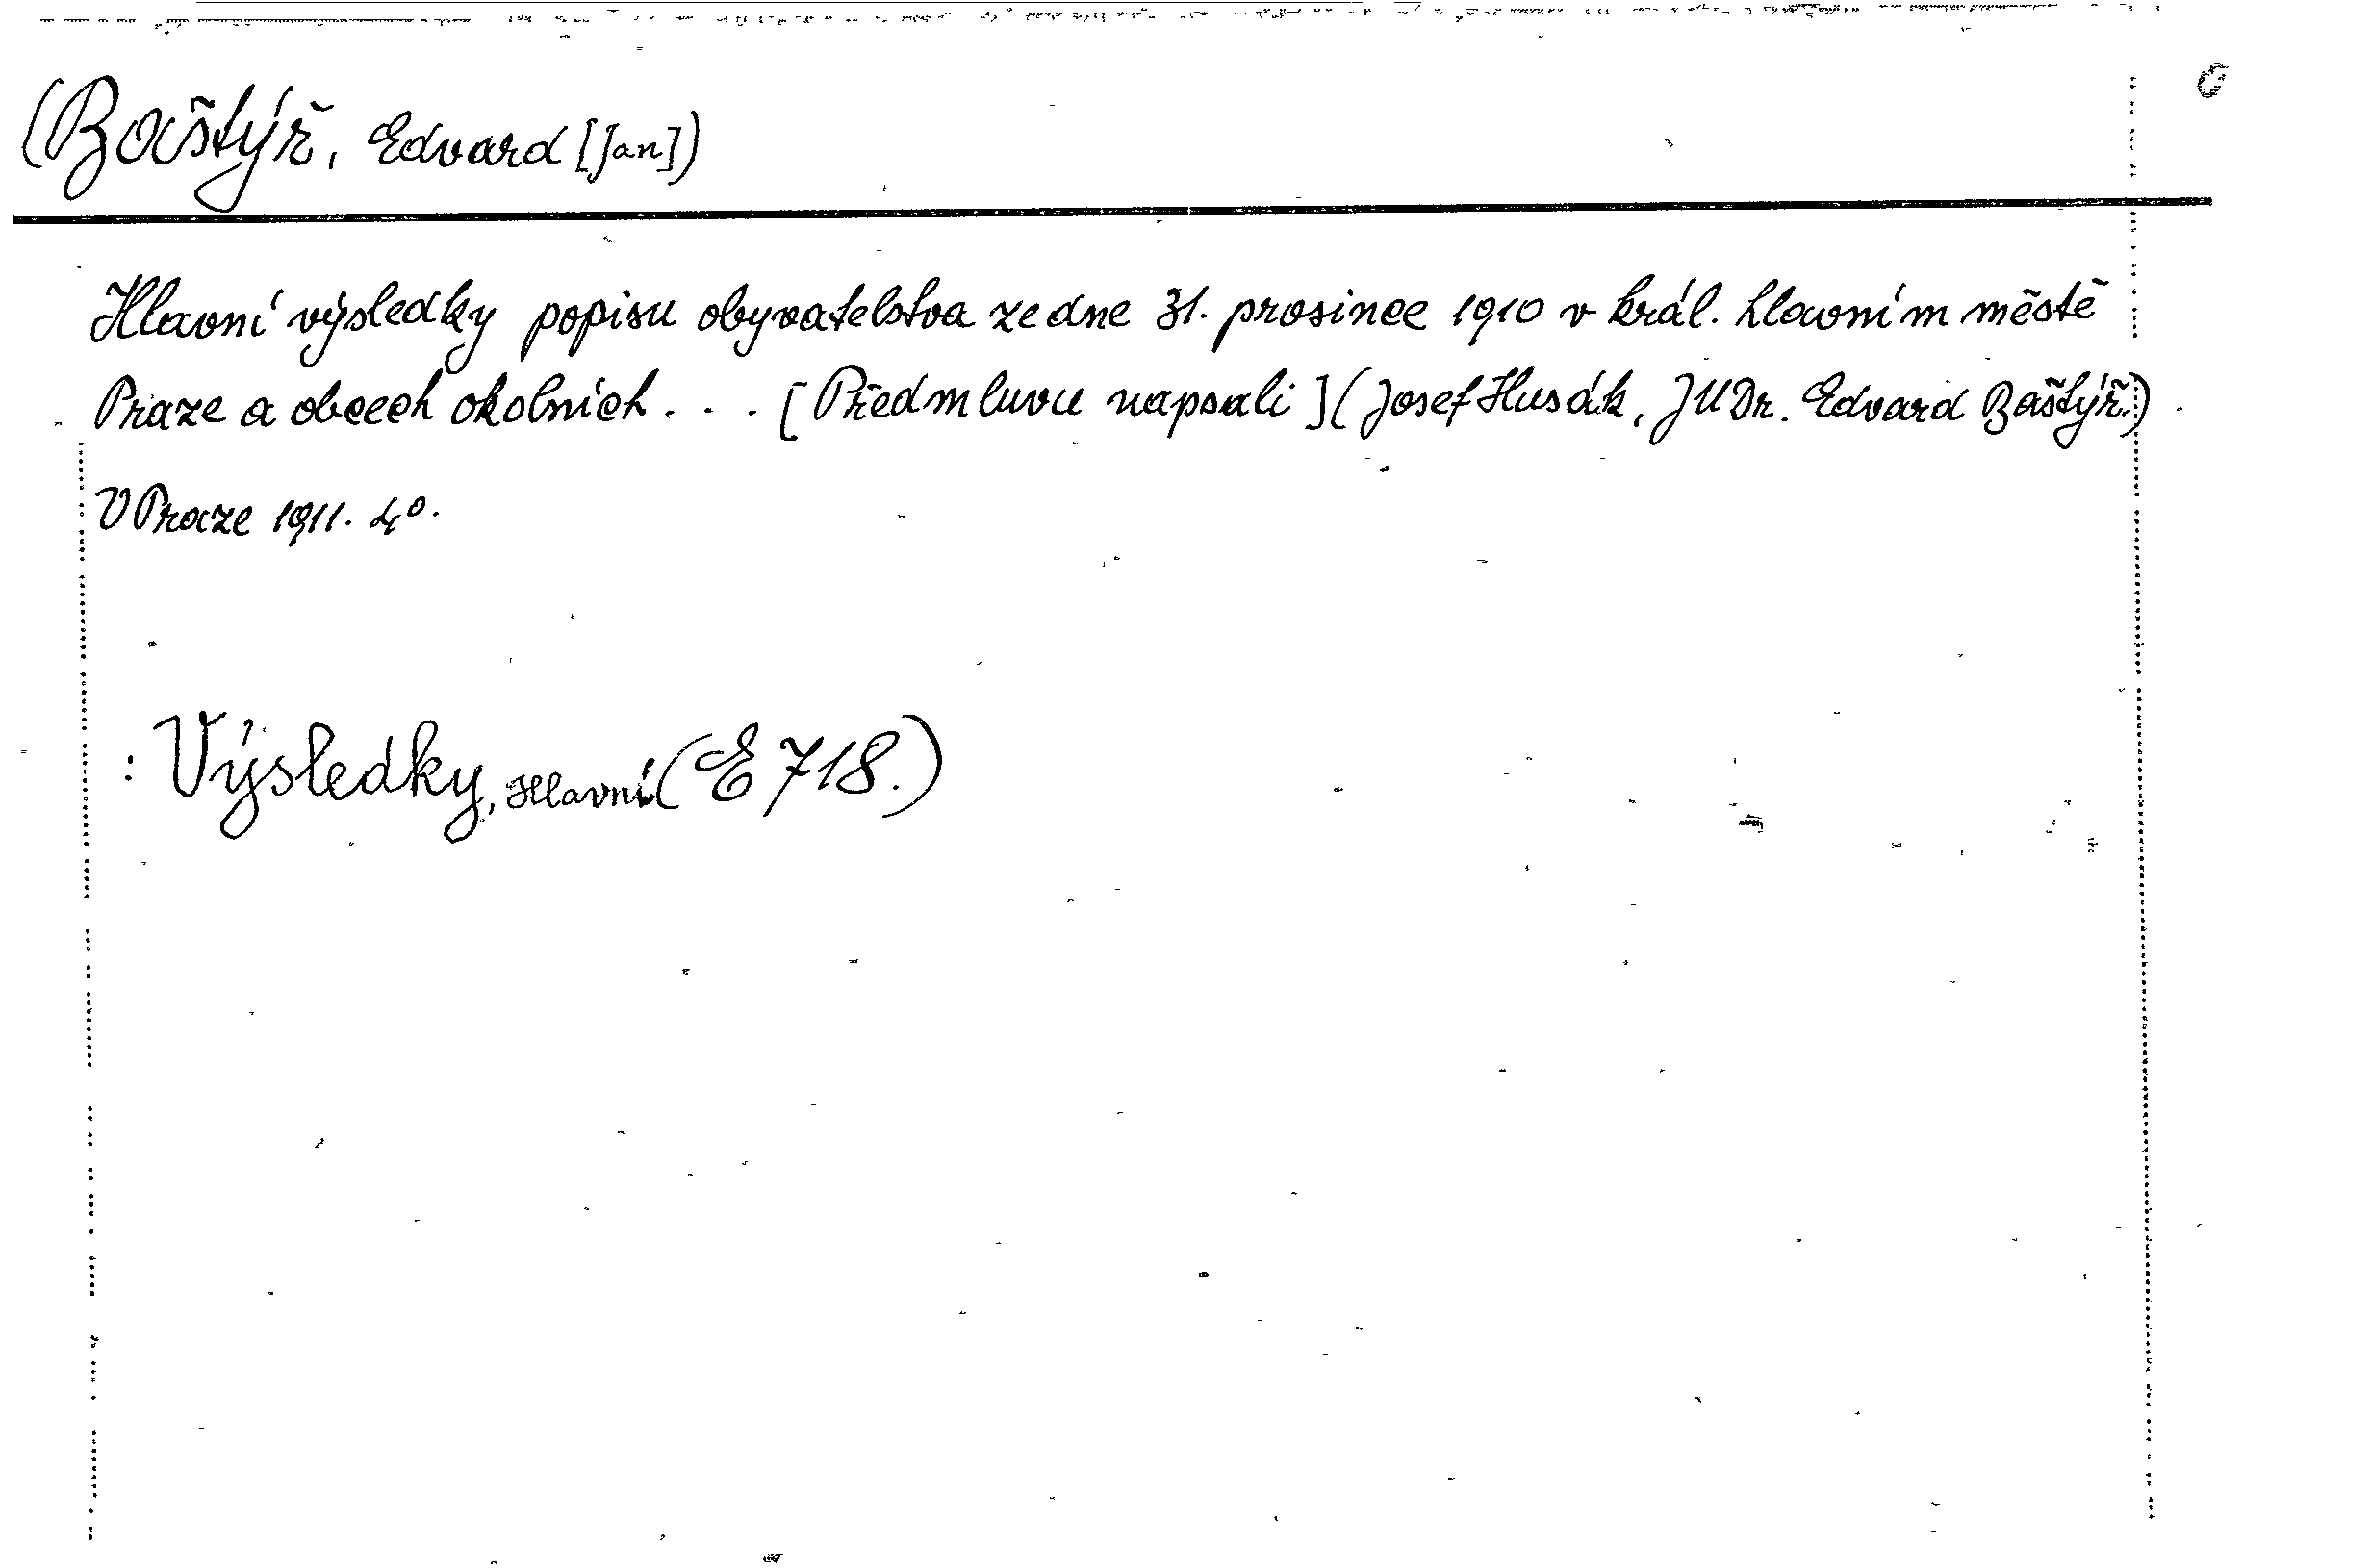 (Baštýř, Edvard [Jan])
Hlavní výsledky popisu obyvatelstva ze dne 31. prosince 1910 v král. hlavním městě
Praze a obcech okolních . . . [Předmluvu napsali] (Josef Husák, JUDr. Edvard Baštýř.)
V Praze 1911. 4°.
: Výsledky, Hlavní (E 718.)